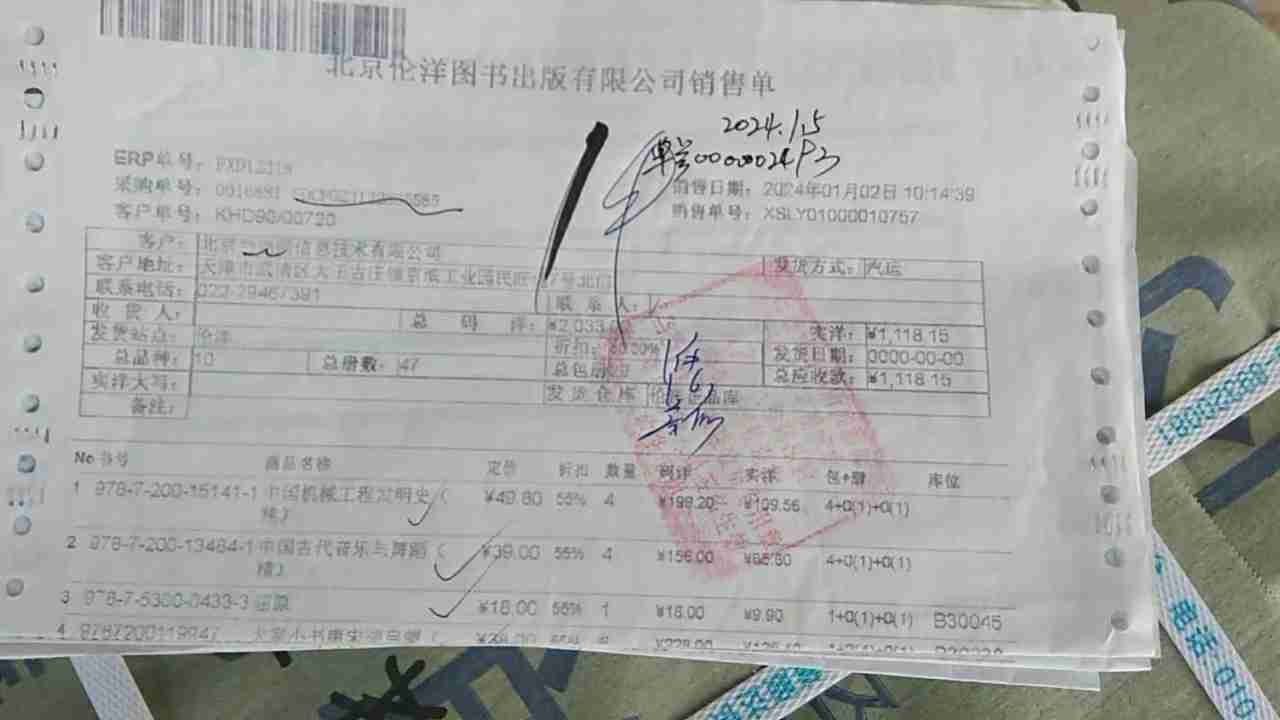 北京伦洋图书出版有限公司销售单
2024.1.5
ERP单号：PXD12219
采购单号：0016881
销售日期：2024年01月02日 10:14:39
客户单号：KHD90/00720
销售单号：XSLY01000010757
客户：北京 信息技术有限公司
客户地址：天津市武清区大王古庄镇京滨工业园民旺 7号北门
发货方式：汽运
联系电话：022-29467391
联系人：
收货人：
总码洋：¥2,033
实洋：¥1,118.15
发货站点：伦洋
折扣：
发货日期：0000-00-00
总品种：10
总册数：47
总包册
总应收款：¥1,118.15
实洋大写：
发货仓库
备注：
No 书号 商品名称 定价 折扣 数量 码洋 实洋 包+册 库位
1 978-7-200-15141-1 中国机械工程发明史（ ¥49.80 55% 4 ¥199.20 ¥109.56 4+0(1)+0(1)
精）
2 978-7-200-13484-1 中国古代音乐与舞蹈（ ¥39.00 55% 4 ¥156.00 ¥85.80 4+0(1)+0(1)
精）
3 978-7-5300-0433-3 屈原 ¥18.00 55% 1 ¥18.00 ¥9.90 1+0(1)+0(1) B30045
4 9787200119947 大家小书 ¥38.00 55% 6 ¥228.00
电话 010